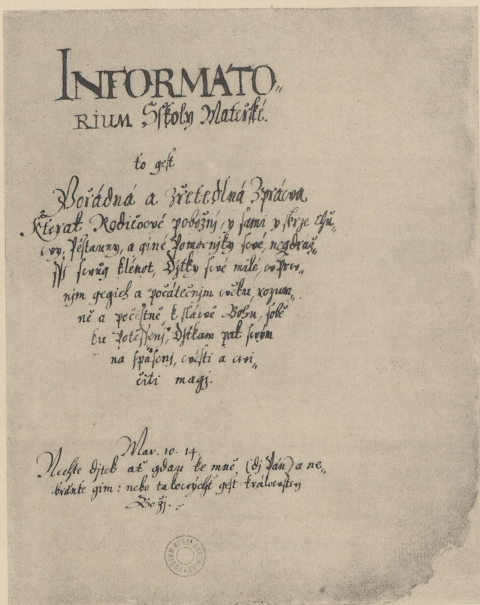 INFORMATO„
RIUM Sskoly Mateřské.
to gest
Pořádná a zřetedlná Zpráwa
Kterak Rodičowé pobožnj, y sami y skrze Chů„
wy, Pěstauny, a giné Pomocnjky swé, neydraž„
ssj swůg klénot, Djtky swé milé, w Prw„
njm gegich a počátečnjm wěku, rozum„
ně a počestně k sláwě Bohu, sobě
ku potěssenj, Djtkam pak swým
na spasenj, wésti a cwi„
čiti magj.
Mar. 10. 14.
Nechte djtek ať gdau ke mně, (dj Pán) a ne„
braňte gim: nebo takowých gest králowstwj
Božj.